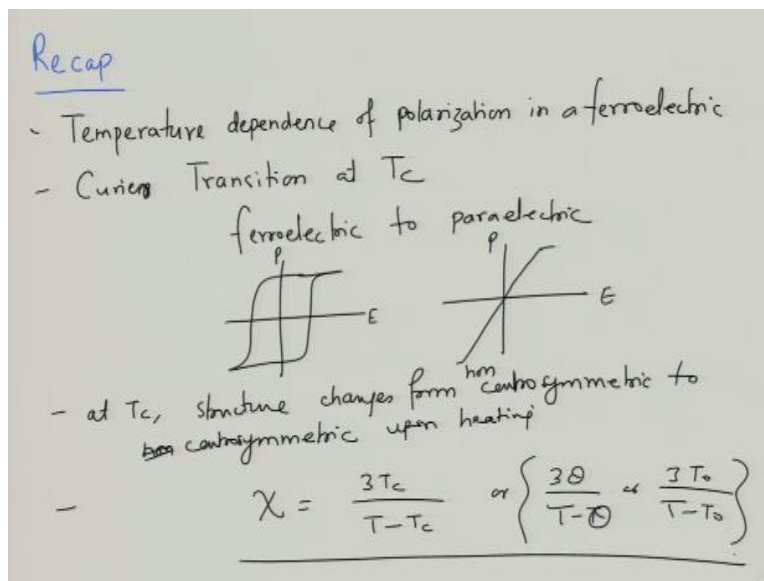 Recap
- Temperature dependence of polarization in a ferroelectric
- Curie Transition at Tc
ferroelectric to paraelectric
P P
E E
non
- at Tc, structure changes form centrosymmetric to
centrosymmetric upon heating
- χ = 3Tc / T - Tc or { 3θ / T - θ or 3T₀ / T - T₀ }